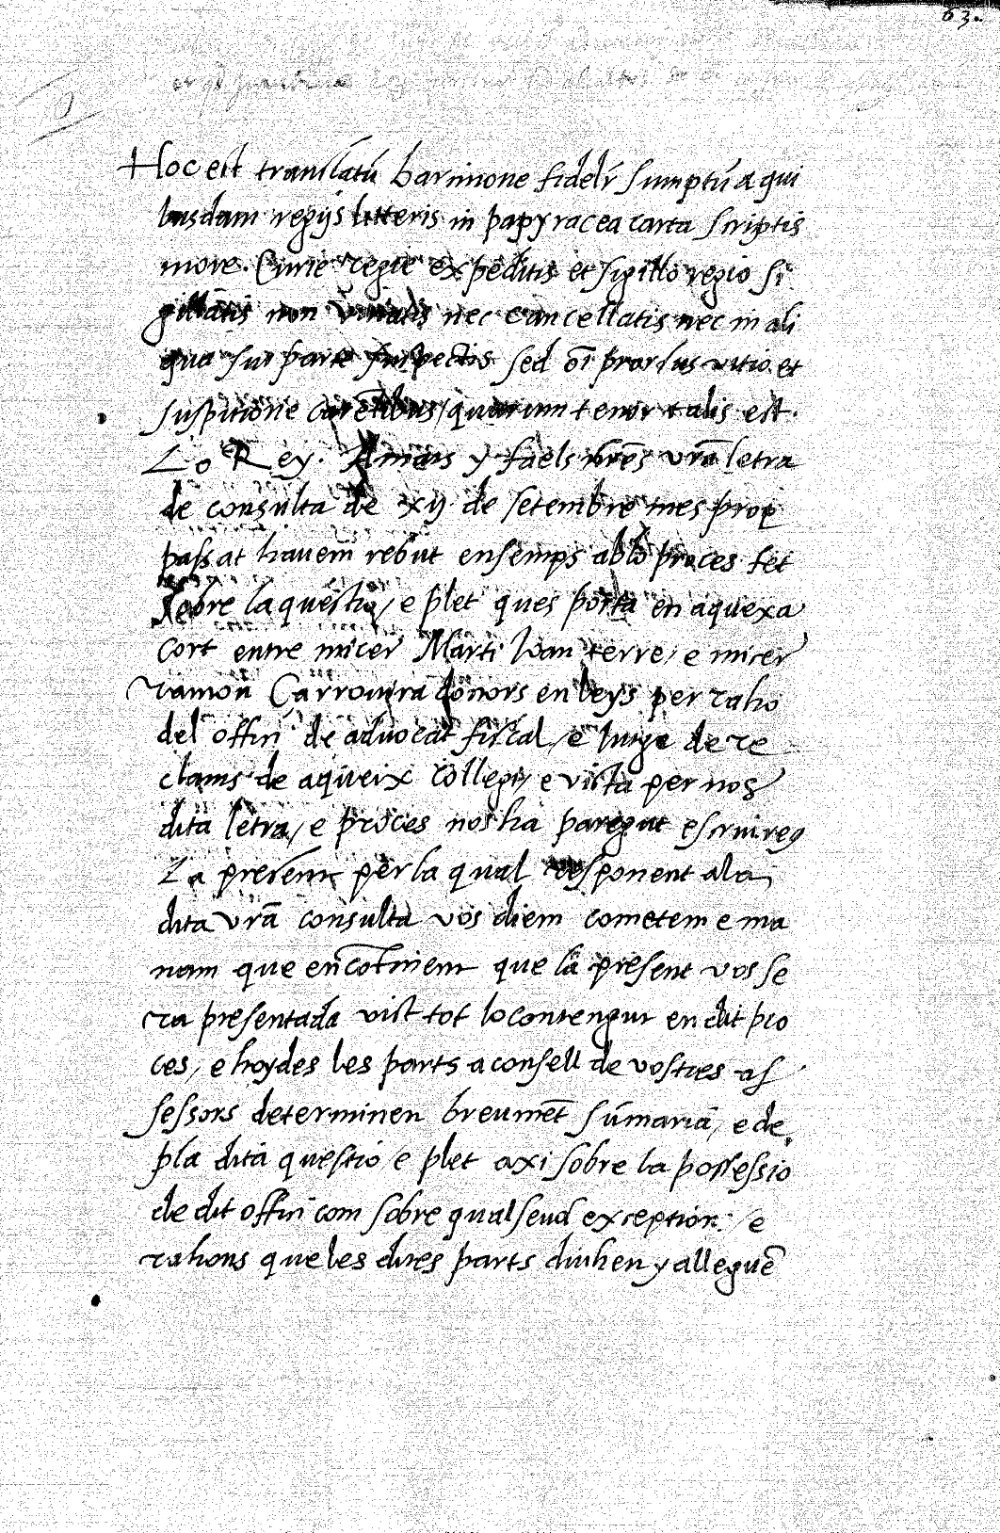 63.
Hoc est translatū barcinone fideliť sumptū a qui
busdam regijs litteris in papyracea carta scriptis
more Curie regie expeditis et sigillo regio si
gillatis non viciatis nec cancellatis nec in ali
qua sui parte suspectis sed oī prorsus vitio et
suspitione carētibus/ quarum tenor talis est.
Lo Rey. Amats y faels nřes vrā letra
de consulta de xij de setembre mes prop
passat havem rebut ensemps ablo proces fet
sobre la questio/ e plet ques porta en aquexa
Cort entre micer Marti Ioan terre/ e micer
ramon Carrovira donors en leys per raho
del offici de advocat fiscal/ e Iutge de re
clams de aqueix collegi/ e vista per nos
dita letra/ e proces nos ha paregut escriureus
La present per la qual responent ala
dita vrā consulta vos diem cometem e ma
nam que encōtinent que la present vos se
ra presentada vist tot lo contengut en dit pro
ces/ e hoydes les parts a consell de vostres as
sessors determinen breumēt sūmaria/ e de
pla dita questio/ e plet axi sobre la possessio
de dit offici com sobre qualsevol exception/ e
rahons que les dites parts diuhen y alleguē